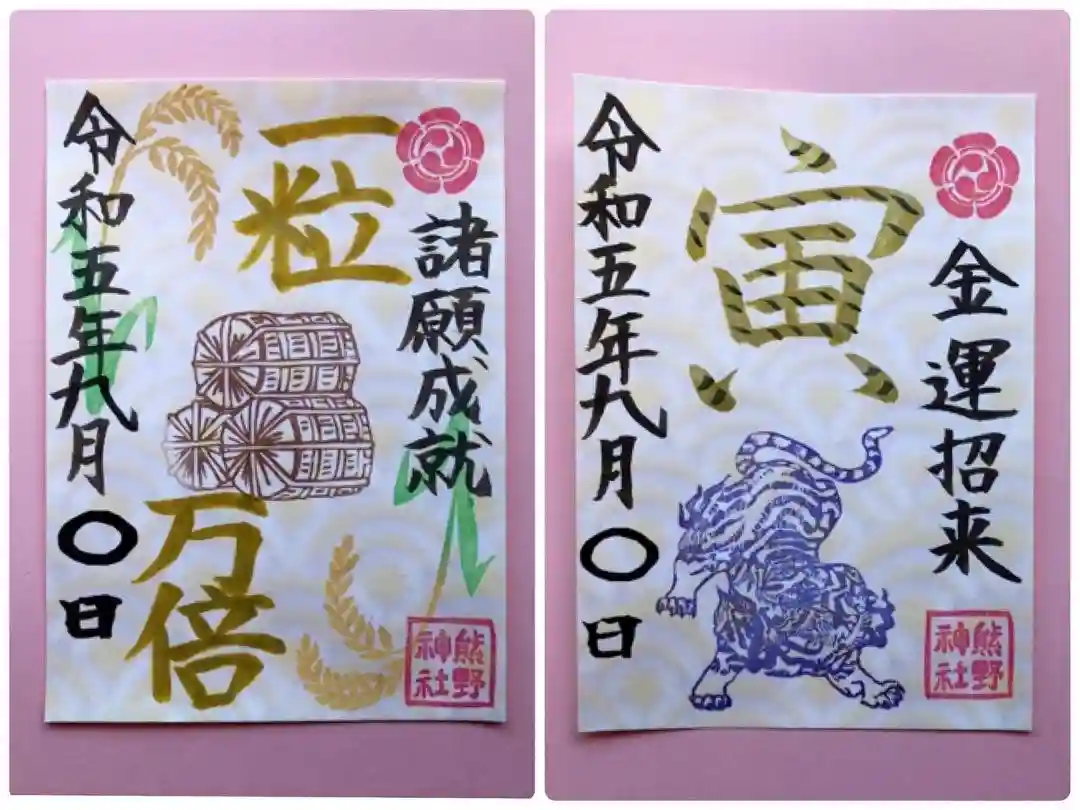 諸願成就
一粒
万倍
令和五年九月〇日
熊野
神社
金運招来
寅
令和五年九月〇日
熊野
神社